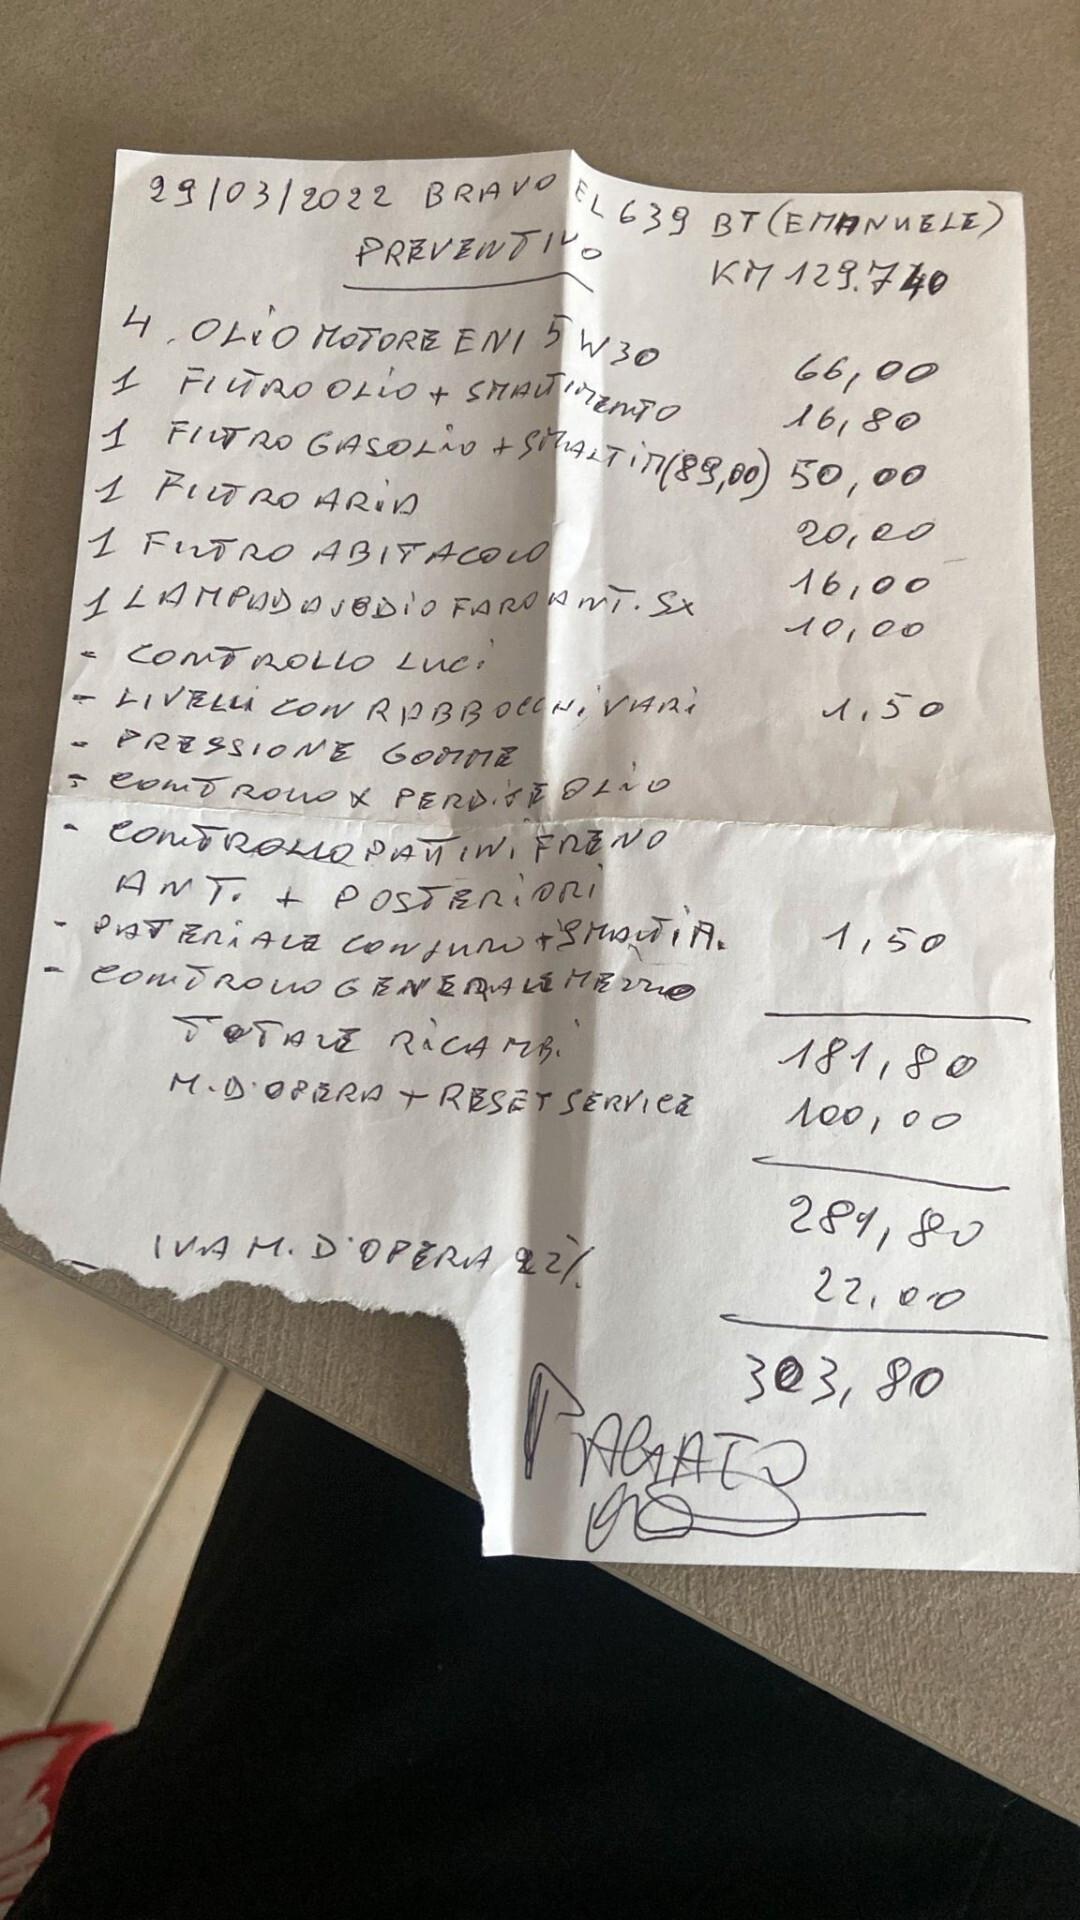 29/03/2022 BRAVO EL 639 BT (EMANUELE)
PREVENTIVO KM 129.740
4 OLIO MOTORE ENI 5W30 66,00
1 FILTRO OLIO + SMALTIMENTO 16,80
1 FILTRO GASOLIO + SMALTIM (89,00) 50,00
1 FILTRO ARIA 20,00
1 FILTRO ABITACOLO 16,00
1 LAMPADA IODIO FARO ANT. SX 10,00
- CONTROLLO LUCI
- LIVELLI CON RABBOCCHI VARI 1,50
- PRESSIONE GOMME
- CONTROLLO X PERDITE OLIO
- CONTROLLO PATTINI FRENO
ANT. + POSTERIORI
- MATERIALE CONSUMO + SMALTIM. 1,50
- CONTROLLO GENERALE MEZZO
TOTALE RICAMBI 181,80
M. D'OPERA + RESET SERVICE 100,00
281,80
IVA M. D'OPERA 22% 22,00
303,80
PAGATO